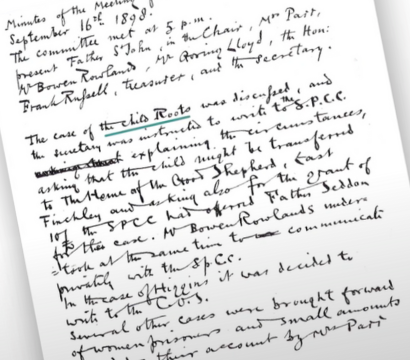 Minutes of the Meeting of
September 16th 1898.
The committee met at 5 p.m.
present Father St John, in the Chair, Mrs Parr,
Mr Bowen Rowlands, Mr Goring Lloyd, the Hon:
Frank Russell, treasurer, and the Secretary.
The case of the child Roots was discussed, and
the secretary was instructed to write to the S.P.C.C.
explaining the circumstances,
asking that the child might be transferred
to The Home of the Good Shepherd, East
Finchley and asking also for the grant of
10/- the SPCC had offered Father Seddon
for this case. Mr Bowen Rowlands under-
-took at the same time to communicate
privately with the S.P.C.C.
In the case of Higgins it was decided to
write to the C.O.S.
Several other cases were brought forward
of women prisoners and small amounts
their account by Mrs Parr